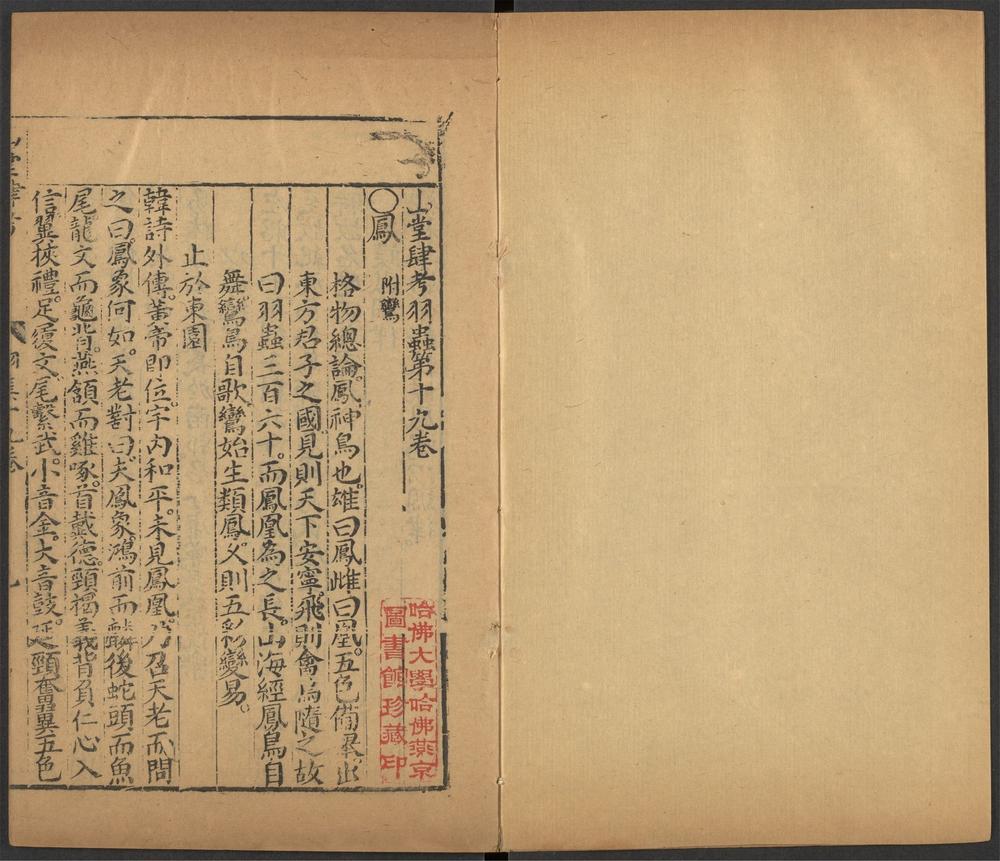 山堂肆考羽蟲第十九卷
○鳳 附鸞
格物總論。鳳神鳥也。雄曰鳳雌曰凰。五色備舉。出
東方君子之國。見則天下安寧。飛則禽鳥隨之。故
曰羽蟲三百六十。而鳳凰為之長。山海經鳳鳥自
舞鸞鳥自歌。鸞始生類鳳。久則五彩變易。
止於東園
韓詩外傳。黃帝即位。宇內和平。未見鳳凰。乃召天老而問
之曰。鳳象何如。天老對曰。夫鳳象。鴻前而麟後。蛇頭而魚
尾。龍文而龜背。燕頷而雞啄。首戴德。頸揭義。背負仁。心入
信。翼挾禮。足履文。尾繫武。小音金。大音鼓。延頸奮翼。五色
哈佛大學哈佛燕京
圖書館珍藏印